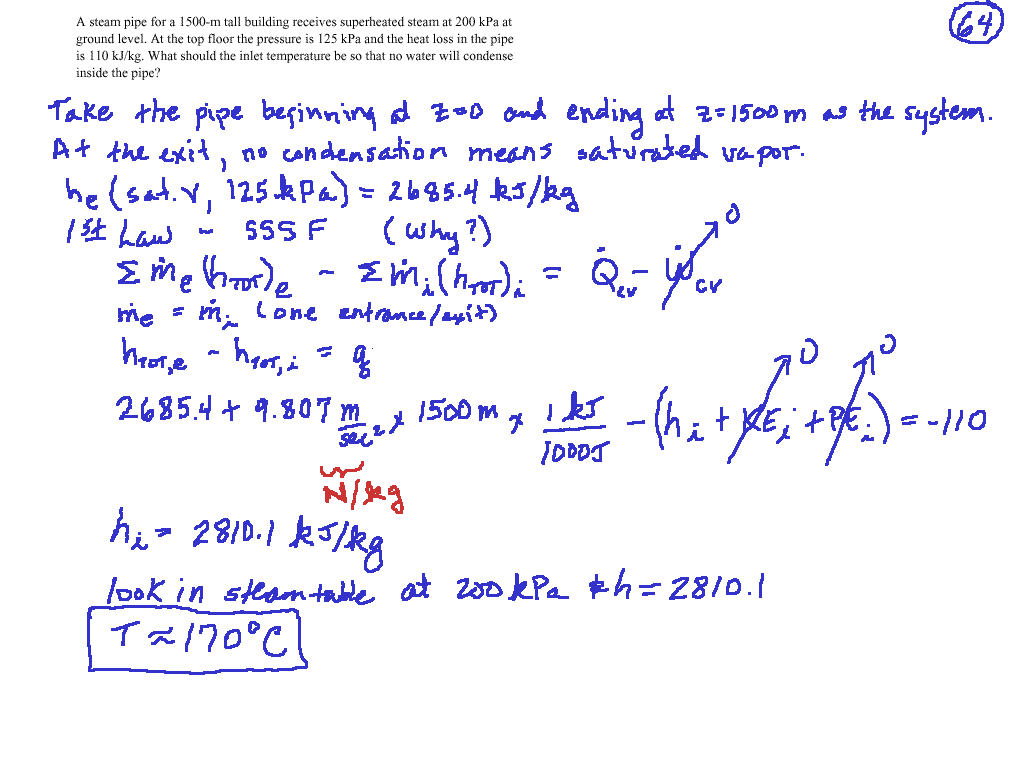 A steam pipe for a 1500-m tall building receives superheated steam at 200 kPa at
ground level. At the top floor the pressure is 125 kPa and the heat loss in the pipe
is 110 kJ/kg. What should the inlet temperature be so that no water will condense
inside the pipe?
64
Take the pipe beginning at z=0 and ending at z=1500 m as the system.
At the exit, no condensation means saturated vapor.
he (sat.v, 125 kPa) = 2685.4 kJ/kg
1st Law - SSSF (why?)
Σ ṁe (hTOT)e - Σ ṁi (hTOT)i = Q̇cv - Ẇcv 0
ṁe = ṁi (one entrance/exit)
hTOT,e - hTOT,i = q
2685.4 + 9.807 m/sec² x 1500 m x 1 kJ/1000J - (hi + KEi 0 + PEi 0) = -110
N/kg
hi = 2810.1 kJ/kg
look in steam table at 200 kPa & h = 2810.1
T ≈ 170°C